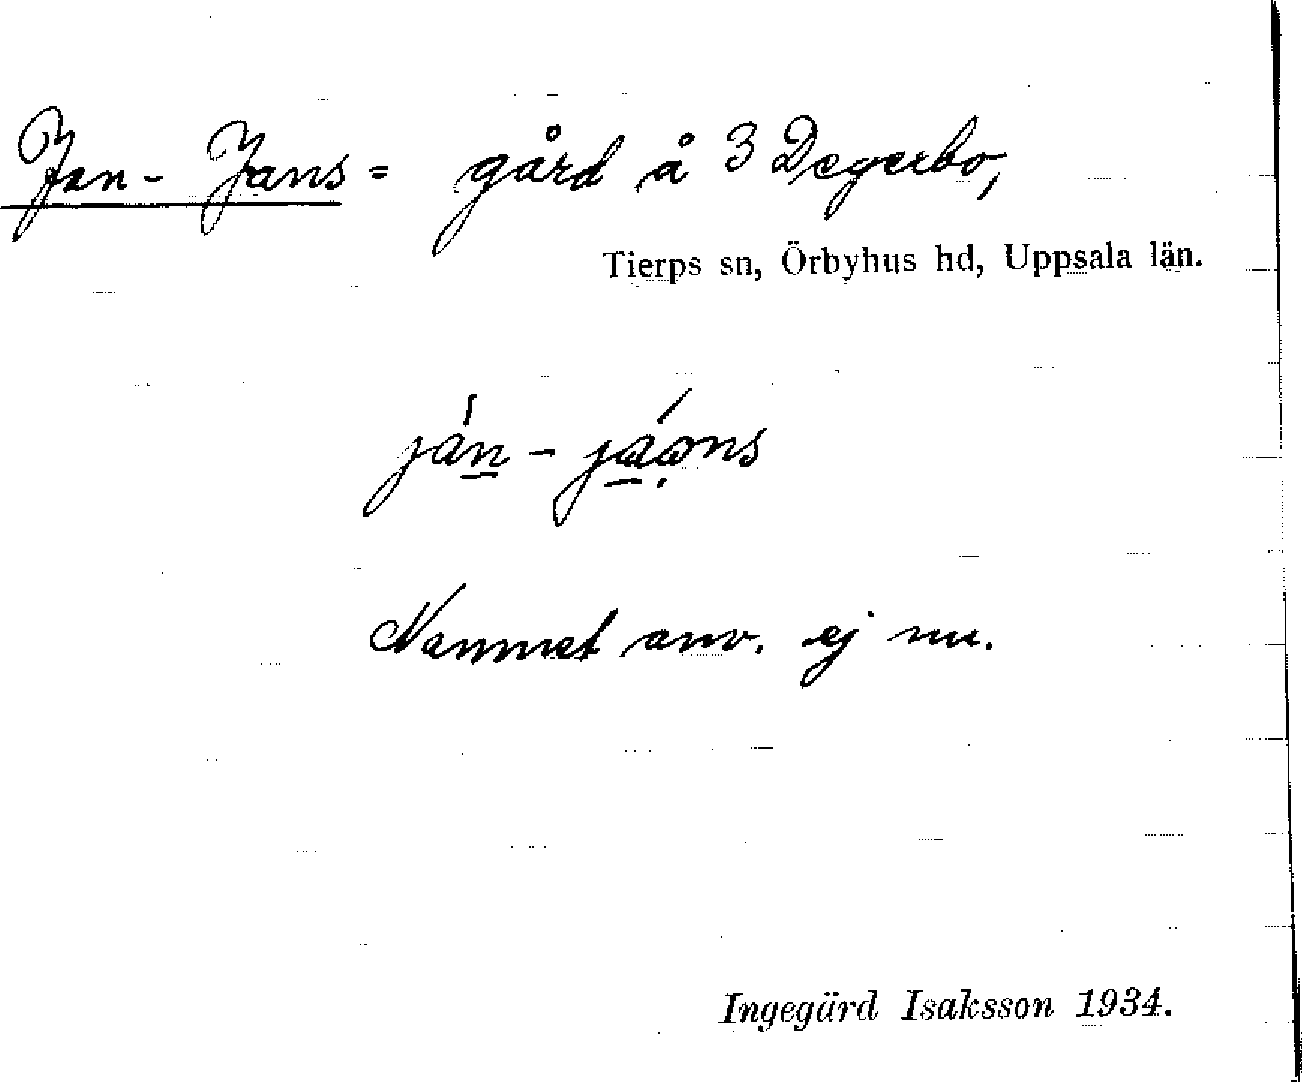 Jan-Jans = gård å 3 Degerbo,
Tierps sn, Örbyhus hd, Uppsala län.
ján - jáɷns
Namnet anv. ej nu.
Ingegärd Isaksson 1934.